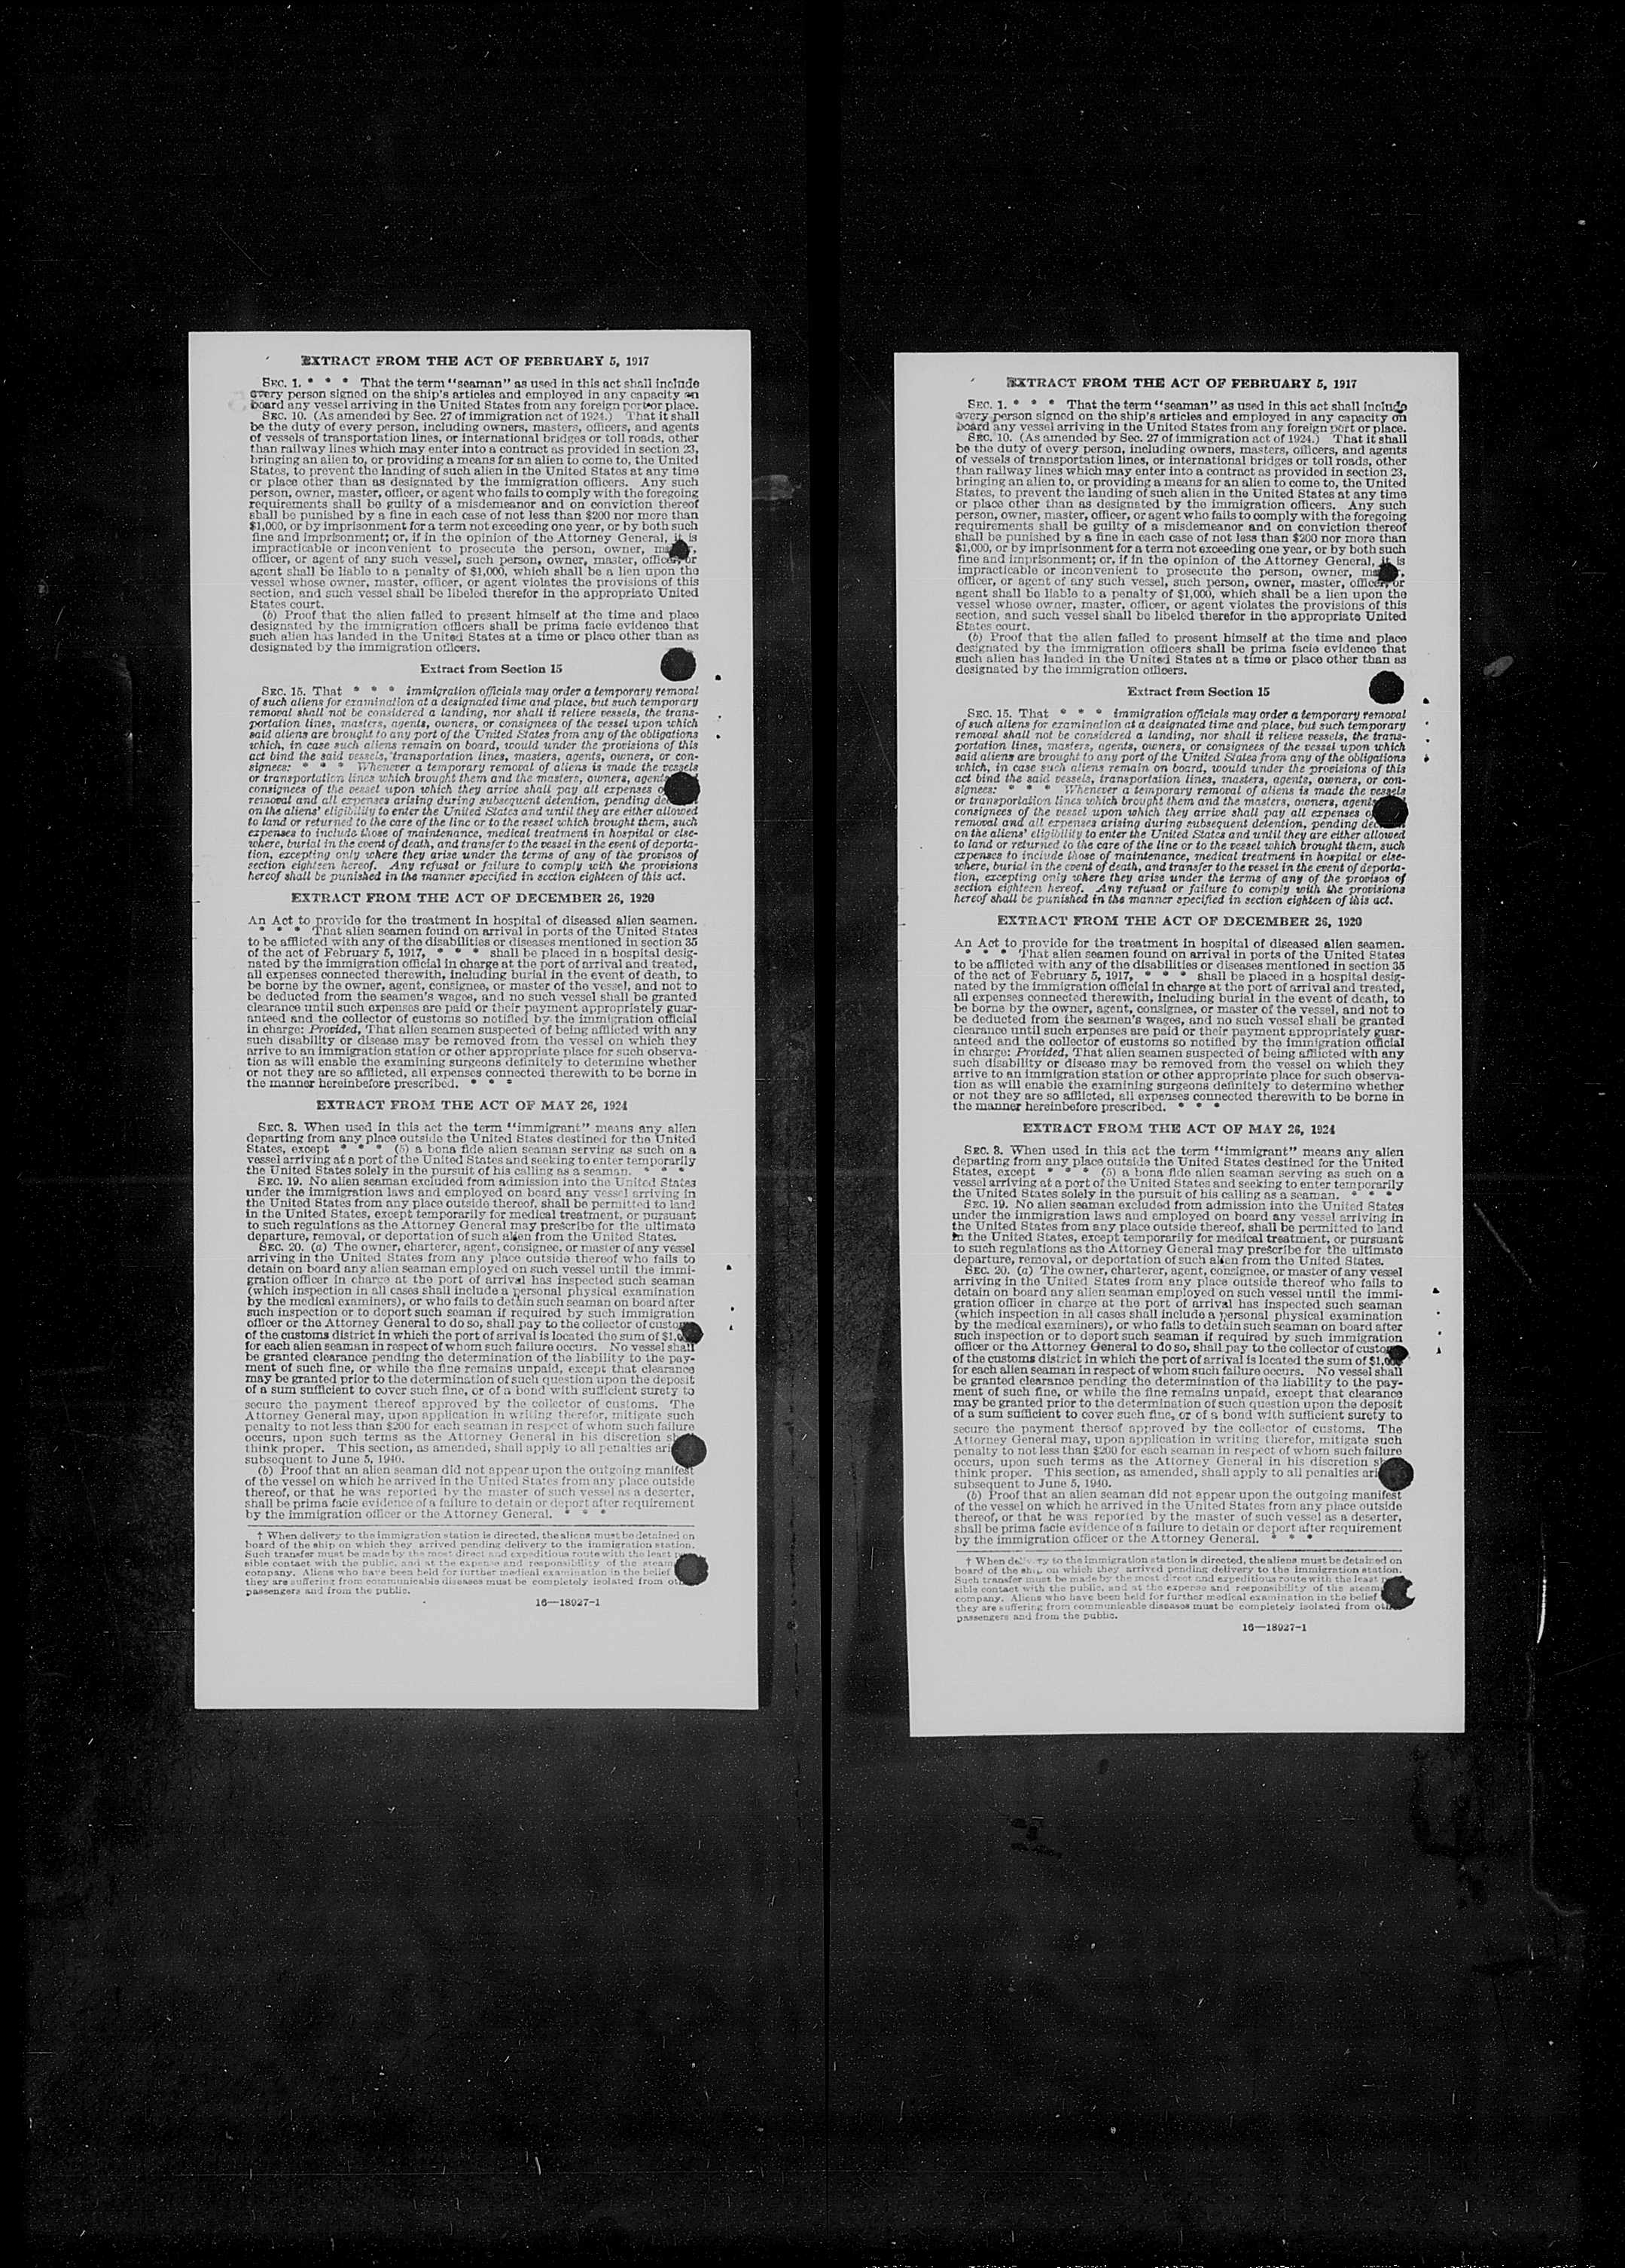 EXTRACT FROM THE ACT OF FEBRUARY 5, 1917
SEC. 1. * * * That the term "seaman" as used in this act shall include
every person signed on the ship's articles and employed in any capacity on
board any vessel arriving in the United States from any foreign port or place.
SEC. 10. (As amended by Sec. 27 of immigration act of 1924.) That it shall
be the duty of every person, including owners, masters, officers, and agents
of vessels of transportation lines, or international bridges or toll roads, other
than railway lines which may enter into a contract as provided in section 23,
bringing an alien to, or providing a means for an alien to come to, the United
States, to prevent the landing of such alien in the United States at any time
or place other than as designated by the immigration officers. Any such
person, owner, master, officer, or agent who fails to comply with the foregoing
requirements shall be guilty of a misdemeanor and on conviction thereof
shall be punished by a fine in each case of not less than $200 nor more than
$1,000, or by imprisonment for a term not exceeding one year, or by both such
fine and imprisonment; or, if in the opinion of the Attorney General, it is
impracticable or inconvenient to prosecute the person, owner,
officer, or agent of any such vessel, such person, owner, master, officer, or
agent shall be liable to a penalty of $1,000, which shall be a lien upon the
vessel whose owner, master, officer, or agent violates the provisions of this
section, and such vessel shall be libeled therefor in the appropriate United
States court.
(b) Proof that the alien failed to present himself at the time and place
designated by the immigration officers shall be prima facie evidence that
such alien has landed in the United States at a time or place other than as
designated by the immigration officers.
Extract from Section 15
SEC. 15. That * * * immigration officials may order a temporary removal
of such aliens for examination at a designated time and place, but such temporary
removal shall not be considered a landing, nor shall it relieve vessels, the trans-
portation lines, masters, agents, owners, or consignees of the vessel upon which
said aliens are brought to any port of the United States from any of the obligations
which, in case such aliens remain on board, would under the provisions of this
act bind the said vessels, transportation lines, masters, agents, owners, or con-
signees: * * * Whenever a temporary removal of aliens is made the vessels
or transportation lines which brought them and the masters, owners, agents
consignees of the vessel upon which they arrive shall pay all expenses
removal and all expenses arising during subsequent detention, pending
on the aliens' eligibility to enter the United States and until they are either allowed
to land or returned to the care of the line or to the vessel which brought them, such
expenses to include those of maintenance, medical treatment in hospital or else-
where, burial in the event of death, and transfer to the vessel in the event of deporta-
tion, excepting only where they arise under the terms of any of the provisos of
section eighteen hereof. Any refusal or failure to comply with the provisions
hereof shall be punished in the manner specified in section eighteen of this act.
EXTRACT FROM THE ACT OF DECEMBER 26, 1920
An Act to provide for the treatment in hospital of diseased alien seamen.
* * * That alien seamen found on arrival in ports of the United States
to be afflicted with any of the disabilities or diseases mentioned in section 35
of the act of February 5, 1917, * * * shall be placed in a hospital desig-
nated by the immigration official in charge at the port of arrival and treated,
all expenses connected therewith, including burial in the event of death, to
be borne by the owner, agent, consignee, or master of the vessel, and not to
be deducted from the seamen's wages, and no such vessel shall be granted
clearance until such expenses are paid or their payment appropriately guar-
anteed and the collector of customs so notified by the immigration official
in charge: Provided, That alien seamen suspected of being afflicted with any
such disability or disease may be removed from the vessel on which they
arrive to an immigration station or other appropriate place for such observa-
tion as will enable the examining surgeons definitely to determine whether
or not they are so afflicted, all expenses connected therewith to be borne in
the manner hereinbefore prescribed. * * *
EXTRACT FROM THE ACT OF MAY 26, 1924
SEC. 3. When used in this act the term "immigrant" means any alien
departing from any place outside the United States destined for the United
States, except * * * (5) a bona fide alien seaman serving as such on a
vessel arriving at a port of the United States and seeking to enter temporarily
the United States solely in the pursuit of his calling as a seaman. * * *
SEC. 19. No alien seaman excluded from admission into the United States
under the immigration laws and employed on board any vessel arriving in
the United States from any place outside thereof, shall be permitted to land
in the United States, except temporarily for medical treatment, or pursuant
to such regulations as the Attorney General may prescribe for the ultimate
departure, removal, or deportation of such alien from the United States.
SEC. 20. (a) The owner, charterer, agent, consignee, or master of any vessel
arriving in the United States from any place outside thereof who fails to
detain on board any alien seaman employed on such vessel until the immi-
gration officer in charge at the port of arrival has inspected such seaman
(which inspection in all cases shall include a personal physical examination
by the medical examiners), or who fails to detain such seaman on board after
such inspection or to deport such seaman if required by such immigration
officer or the Attorney General to do so, shall pay to the collector of customs
of the customs district in which the port of arrival is located the sum of
for each alien seaman in respect of whom such failure occurs. No vessel shall
be granted clearance pending the determination of the liability to the pay-
ment of such fine, or while the fine remains unpaid, except that clearance
may be granted prior to the determination of such question upon the deposit
of a sum sufficient to cover such fine, or of a bond with sufficient surety to
secure the payment thereof approved by the collector of customs. The
Attorney General may, upon application in writing therefor, mitigate such
penalty to not less than $200 for each seaman in respect of whom such failure
occurs, upon such terms as the Attorney General in his discretion
think proper. This section, as amended, shall apply to all penalties
subsequent to June 5, 1940.
(b) Proof that an alien seaman did not appear upon the outgoing manifest
of the vessel on which he arrived in the United States from any place outside
thereof, or that he was reported by the master of such vessel as a deserter,
shall be prima facie evidence of a failure to detain or deport after requirement
by the immigration officer or the Attorney General. * * *
† When delivery to the immigration station is directed, the aliens must be detained on
board of the ship on which they arrived pending delivery to the immigration station.
Such transfer must be made by the most direct and expeditious route with the least
sible contact with the public, and at the expense and responsibility of the
company. Aliens who have been held for further medical examination in the belief
they are suffering from communicable diseases must be completely isolated from
passengers and from the public.
16—18927-1
EXTRACT FROM THE ACT OF FEBRUARY 5, 1917
SEC. 1. * * * That the term "seaman" as used in this act shall include
every person signed on the ship's articles and employed in any capacity on
board any vessel arriving in the United States from any foreign port or place.
SEC. 10. (As amended by Sec. 27 of immigration act of 1924.) That it shall
be the duty of every person, including owners, masters, officers, and agents
of vessels of transportation lines, or international bridges or toll roads, other
than railway lines which may enter into a contract as provided in section 23,
bringing an alien to, or providing a means for an alien to come to, the United
States, to prevent the landing of such alien in the United States at any time
or place other than as designated by the immigration officers. Any such
person, owner, master, officer, or agent who fails to comply with the foregoing
requirements shall be guilty of a misdemeanor and on conviction thereof
shall be punished by a fine in each case of not less than $200 nor more than
$1,000, or by imprisonment for a term not exceeding one year, or by both such
fine and imprisonment; or, if in the opinion of the Attorney General, it is
impracticable or inconvenient to prosecute the person, owner,
officer, or agent of any such vessel, such person, owner, master, officer, or
agent shall be liable to a penalty of $1,000, which shall be a lien upon the
vessel whose owner, master, officer, or agent violates the provisions of this
section, and such vessel shall be libeled therefor in the appropriate United
States court.
(b) Proof that the alien failed to present himself at the time and place
designated by the immigration officers shall be prima facie evidence that
such alien has landed in the United States at a time or place other than as
designated by the immigration officers.
Extract from Section 15
SEC. 15. That * * * immigration officials may order a temporary removal
of such aliens for examination at a designated time and place, but such temporary
removal shall not be considered a landing, nor shall it relieve vessels, the trans-
portation lines, masters, agents, owners, or consignees of the vessel upon which
said aliens are brought to any port of the United States from any of the obligations
which, in case such aliens remain on board, would under the provisions of this
act bind the said vessels, transportation lines, masters, agents, owners, or con-
signees: * * * Whenever a temporary removal of aliens is made the vessels
or transportation lines which brought them and the masters, owners, agents
consignees of the vessel upon which they arrive shall pay all expenses
removal and all expenses arising during subsequent detention, pending
on the aliens' eligibility to enter the United States and until they are either allowed
to land or returned to the care of the line or to the vessel which brought them, such
expenses to include those of maintenance, medical treatment in hospital or else-
where, burial in the event of death, and transfer to the vessel in the event of deporta-
tion, excepting only where they arise under the terms of any of the provisos of
section eighteen hereof. Any refusal or failure to comply with the provisions
hereof shall be punished in the manner specified in section eighteen of this act.
EXTRACT FROM THE ACT OF DECEMBER 26, 1920
An Act to provide for the treatment in hospital of diseased alien seamen.
* * * That alien seamen found on arrival in ports of the United States
to be afflicted with any of the disabilities or diseases mentioned in section 35
of the act of February 5, 1917, * * * shall be placed in a hospital desig-
nated by the immigration official in charge at the port of arrival and treated,
all expenses connected therewith, including burial in the event of death, to
be borne by the owner, agent, consignee, or master of the vessel, and not to
be deducted from the seamen's wages, and no such vessel shall be granted
clearance until such expenses are paid or their payment appropriately guar-
anteed and the collector of customs so notified by the immigration official
in charge: Provided, That alien seamen suspected of being afflicted with any
such disability or disease may be removed from the vessel on which they
arrive to an immigration station or other appropriate place for such observa-
tion as will enable the examining surgeons definitely to determine whether
or not they are so afflicted, all expenses connected therewith to be borne in
the manner hereinbefore prescribed. * * *
EXTRACT FROM THE ACT OF MAY 26, 1924
SEC. 3. When used in this act the term "immigrant" means any alien
departing from any place outside the United States destined for the United
States, except * * * (5) a bona fide alien seaman serving as such on a
vessel arriving at a port of the United States and seeking to enter temporarily
the United States solely in the pursuit of his calling as a seaman. * * *
SEC. 19. No alien seaman excluded from admission into the United States
under the immigration laws and employed on board any vessel arriving in
the United States from any place outside thereof, shall be permitted to land
in the United States, except temporarily for medical treatment, or pursuant
to such regulations as the Attorney General may prescribe for the ultimate
departure, removal, or deportation of such alien from the United States.
SEC. 20. (a) The owner, charterer, agent, consignee, or master of any vessel
arriving in the United States from any place outside thereof who fails to
detain on board any alien seaman employed on such vessel until the immi-
gration officer in charge at the port of arrival has inspected such seaman
(which inspection in all cases shall include a personal physical examination
by the medical examiners), or who fails to detain such seaman on board after
such inspection or to deport such seaman if required by such immigration
officer or the Attorney General to do so, shall pay to the collector of customs
of the customs district in which the port of arrival is located the sum of
for each alien seaman in respect of whom such failure occurs. No vessel shall
be granted clearance pending the determination of the liability to the pay-
ment of such fine, or while the fine remains unpaid, except that clearance
may be granted prior to the determination of such question upon the deposit
of a sum sufficient to cover such fine, or of a bond with sufficient surety to
secure the payment thereof approved by the collector of customs. The
Attorney General may, upon application in writing therefor, mitigate such
penalty to not less than $200 for each seaman in respect of whom such failure
occurs, upon such terms as the Attorney General in his discretion
think proper. This section, as amended, shall apply to all penalties
subsequent to June 5, 1940.
(b) Proof that an alien seaman did not appear upon the outgoing manifest
of the vessel on which he arrived in the United States from any place outside
thereof, or that he was reported by the master of such vessel as a deserter,
shall be prima facie evidence of a failure to detain or deport after requirement
by the immigration officer or the Attorney General. * * *
† When delivery to the immigration station is directed, the aliens must be detained on
board of the ship on which they arrived pending delivery to the immigration station.
Such transfer must be made by the most direct and expeditious route with the least
sible contact with the public, and at the expense and responsibility of the
company. Aliens who have been held for further medical examination in the belief
they are suffering from communicable diseases must be completely isolated from
passengers and from the public.
16—18927-1